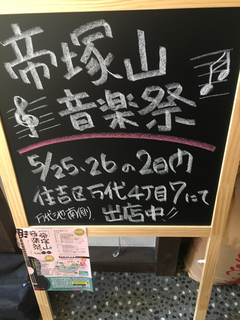 帝塚山
音楽祭
5/25.26の2日内
住吉区万代4丁目7にて
万代池南側 出店中!!
帝塚山
音楽祭